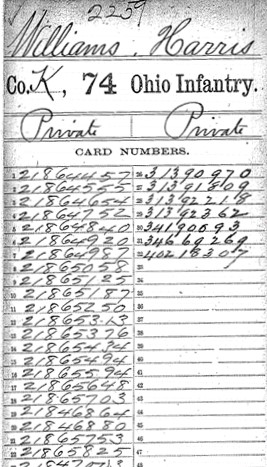 2259
Williams, Harris
Co. K, 74 Ohio Infantry.
Private Private
CARD NUMBERS.
1 21864457 26 31390970
2 21864555 27 31391809
3 21864654 28 31392218
4 21864752 29 31392362
5 21864840 30 34190093
6 21864920 31 34669269
7 21864987 32 40218307
8 21865058 33
9 21865125 34
10 21865187 35
11 21865250 36
12 21865313 37
13 21865376 38
14 21865434 39
15 21865494 40
16 21865594 41
17 21865648 42
18 21865703 43
19 21846864 44
20 21846880 45
21 21865753 46
22 21865825 47
48